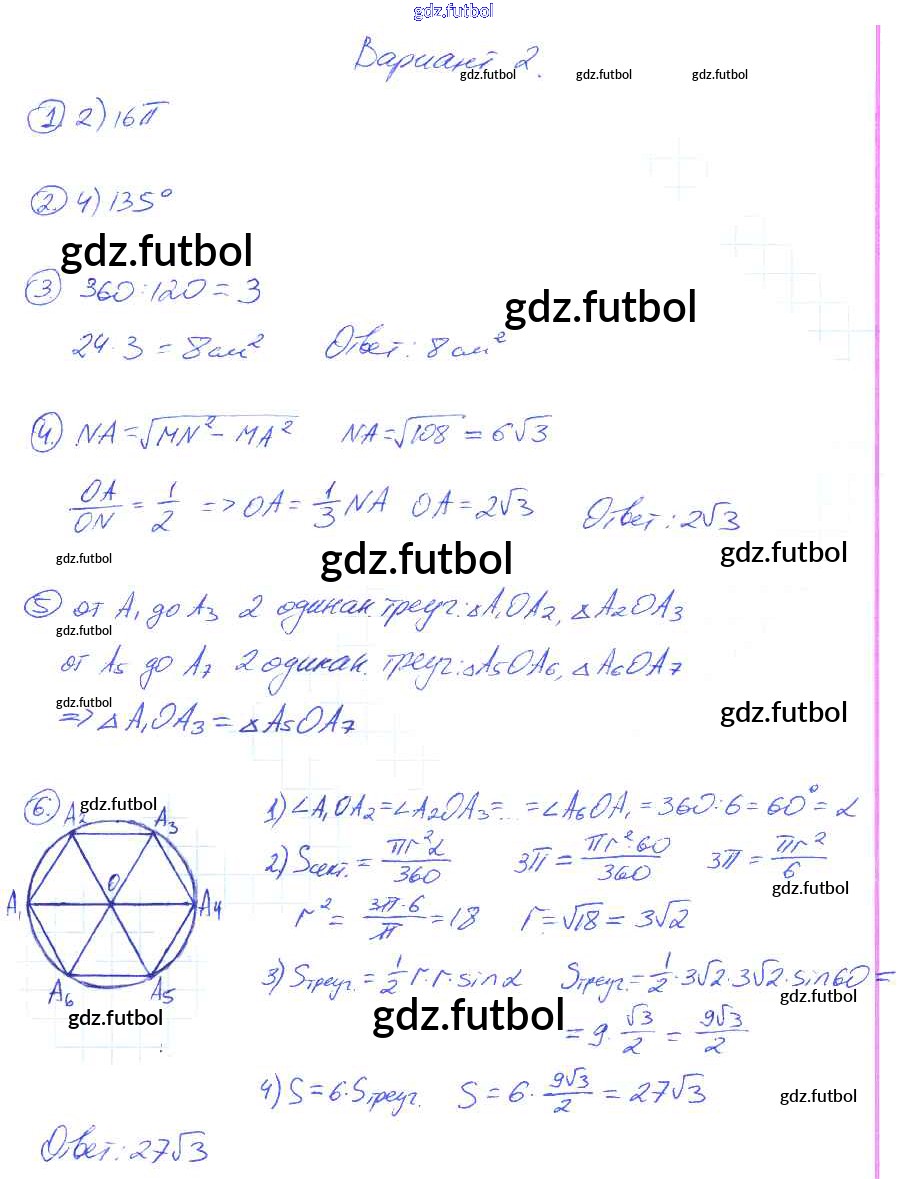 gdz.futbol
Вариант 2.
gdz.futbol gdz.futbol gdz.futbol
1. 2) 16π
2. 4) 135°
gdz.futbol
3. 360 : 120 = 3
gdz.futbol
24 · 3 = 8 см² Ответ: 8 см²
4. NA = √(MN² - MA²) NA = √108 = 6√3
OA/ON = 1/2 => OA = 1/3 NA OA = 2√3 Ответ: 2√3
gdz.futbol gdz.futbol gdz.futbol
5 от A₁ до A₃ 2 одинак. треуг.: △A₁OA₂, △A₂OA₃
gdz.futbol
от A₅ до A₇ 2 одинак. треуг.: △A₅OA₆, △A₆OA₇
gdz.futbol
=> △A₁OA₃ = △A₅OA₇
gdz.futbol
6. gdz.futbol
A₂ A₃
O
A₁ A₄
A₆ A₅
gdz.futbol
1) ∠A₁OA₂ = ∠A₂OA₃ = ... = ∠A₆OA₁ = 360 : 6 = 60° = α
2) Sсект. = πr²α/360 3π = πr²·60/360 3π = πr²/6
gdz.futbol
r² = 3π·6/π = 18 r = √18 = 3√2
3) Sтреуг. = 1/2 r·r·sinα Sтреуг. = 1/2 · 3√2 · 3√2 · sin60 =
gdz.futbol
gdz.futbol
= 9 · √3/2 = 9√3/2
4) S = 6·Sтреуг. S = 6 · 9√3/2 = 27√3
gdz.futbol
Ответ: 27√3